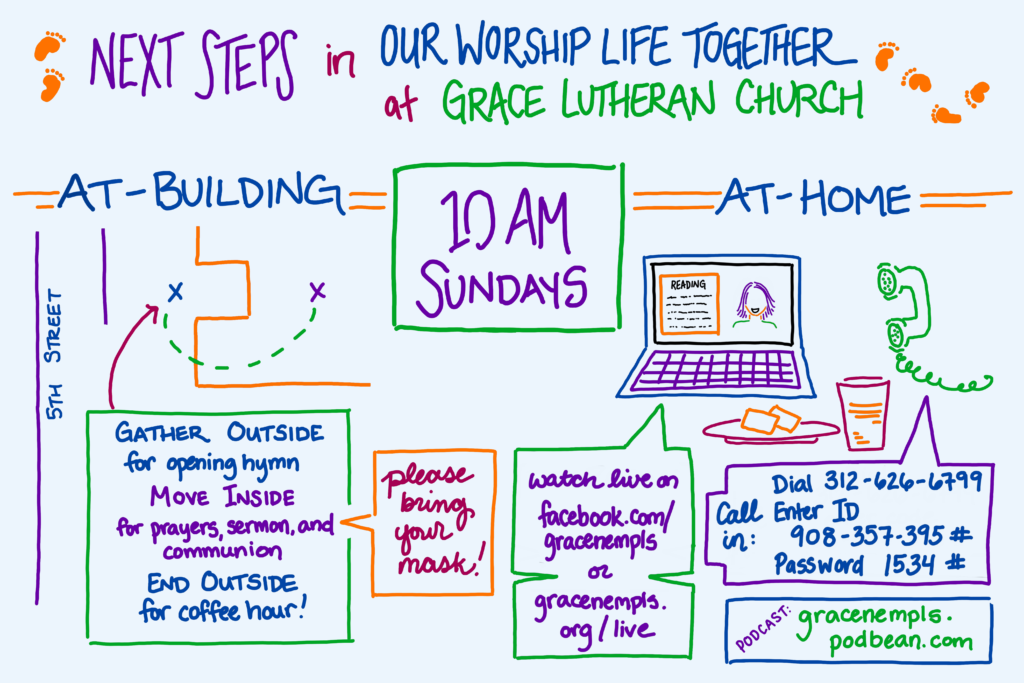 NEXT STEPS in OUR WORSHIP LIFE TOGETHER
at GRACE LUTHERAN CHURCH
AT-BUILDING
10 AM
SUNDAYS
AT-HOME
5TH STREET
X
X
READING
GATHER OUTSIDE
for opening hymn
MOVE INSIDE
for prayers, sermon, and
communion
END OUTSIDE
for coffee hour!
please
bring
your
mask!
watch live on
facebook.com/
gracenempls
or
gracenempls.
org/live
Call in:
Dial 312-626-6799
Enter ID
908-357-395#
Password 1534 #
PODCAST:
gracenempls.
podbean.com